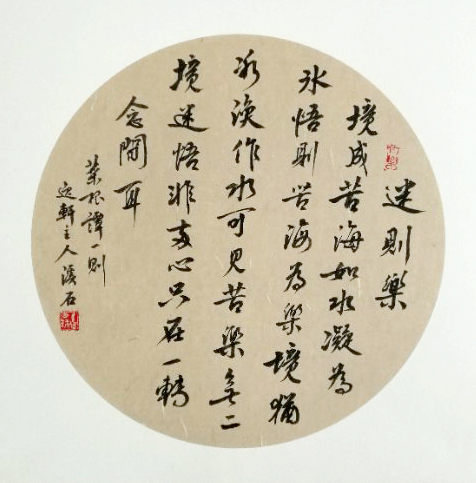 迷則樂
境成苦海如水凝為
氷悟則苦海為樂境猶
冰渙作水可見苦樂無二
境迷悟非兩心只在一轉
念間耳
菜根譚一則
軒主人石